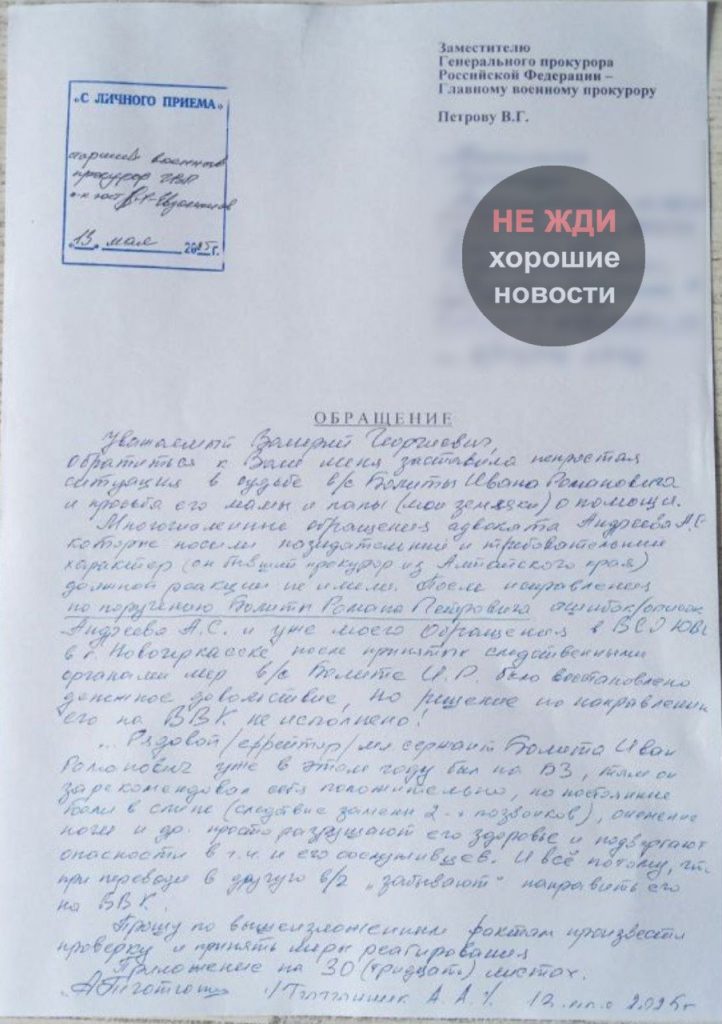 Заместителю
Генерального прокурора
Российской Федерации –
Главному военному прокурору
Петрову В.Г.
«С ЛИЧНОГО ПРИЕМА»
старший военный
прокурор ГВП
13 мая 2025 г.
НЕ ЖДИ
хорошие
новости
ОБРАЩЕНИЕ
Уважаемый Валерий Георгиевич,
обратиться к Вам меня заставила непростая
ситуация в судьбе в/с Болиты Ивана Романовича
и просьба его мамы и папы (мои земляки) о помощи.
Многочисленные обращения адвоката Андреева А.С.
которые носили назидательный и требовательный
характер (он бывший прокурор из Алтайского края)
должной реакции не имели. После исправления
по поручению Болиты Романа Петровича ошибок/описок
Андреева А.С. и уже моего Обращения в ВСО ЮВО
в г. Новочеркасске после принятых следственными
органами мер в/с Болите И.Р. было востановлено
денежное довольствие, но решение по направлению
его на ВВК не исполнено!
... Рядовой/ефрейтор/мл сержант Болита Иван
Романович уже в этом году был на БЗ, там он
зарекомендовал себя положительно, но постоянные
боли в спине (следствие замены 2-х позвонков), онемение
ноги и др. просто разрушают его здоровье и подвергают
опасности в т.ч. и его сослуживцев. И всё потому, что
при переводе в другую в/ч „забывают" направить его
на ВВК.
Прошу по вышеизложенным фактам произвести
проверку и принять меры реагирования
Приложение на 30 (тридцать) листах.
А.А. 12 2025г